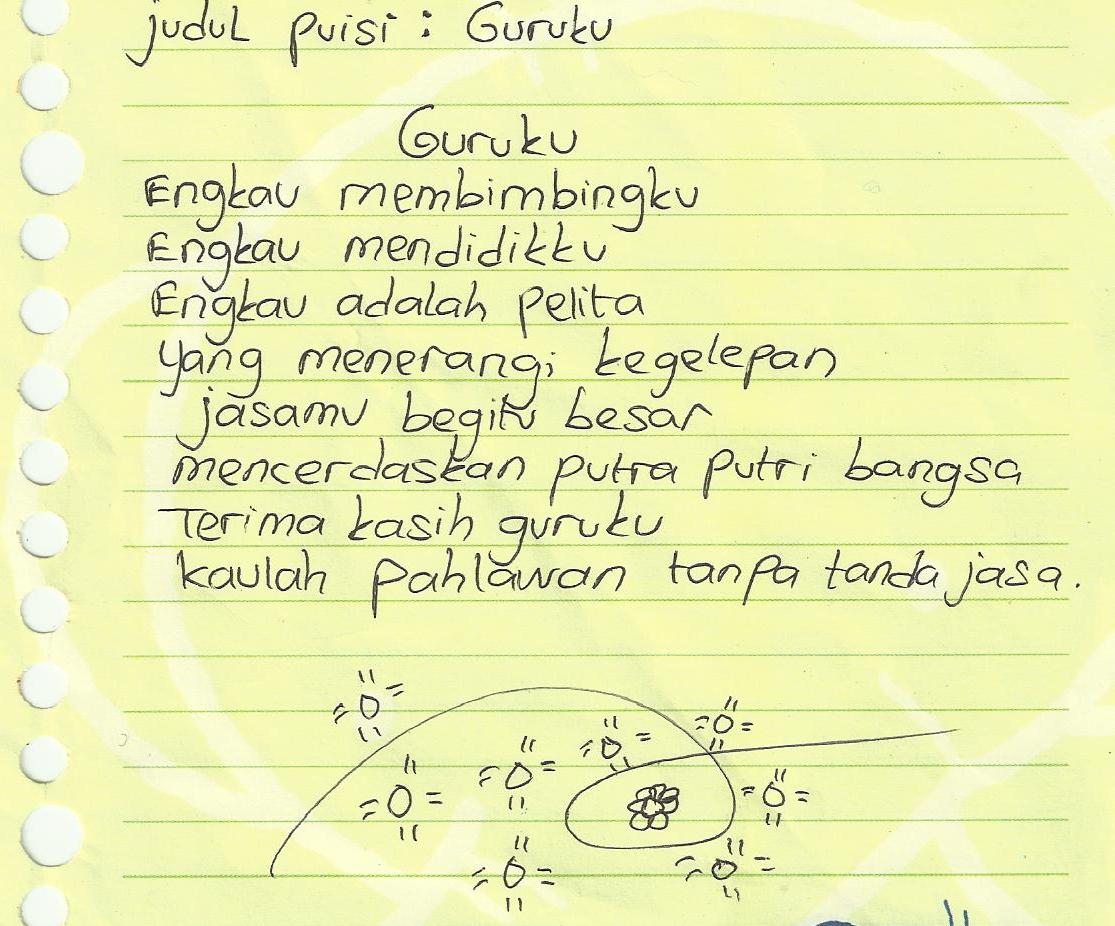 judul puisi : Guruku
Guruku
Engkau membimbingku
Engkau mendidikku
Engkau adalah pelita
yang menerangi kegelepan
jasamu begitu besar
mencerdaskan putra putri bangsa
Terima kasih guruku
kaulah pahlawan tanpa tanda jasa.